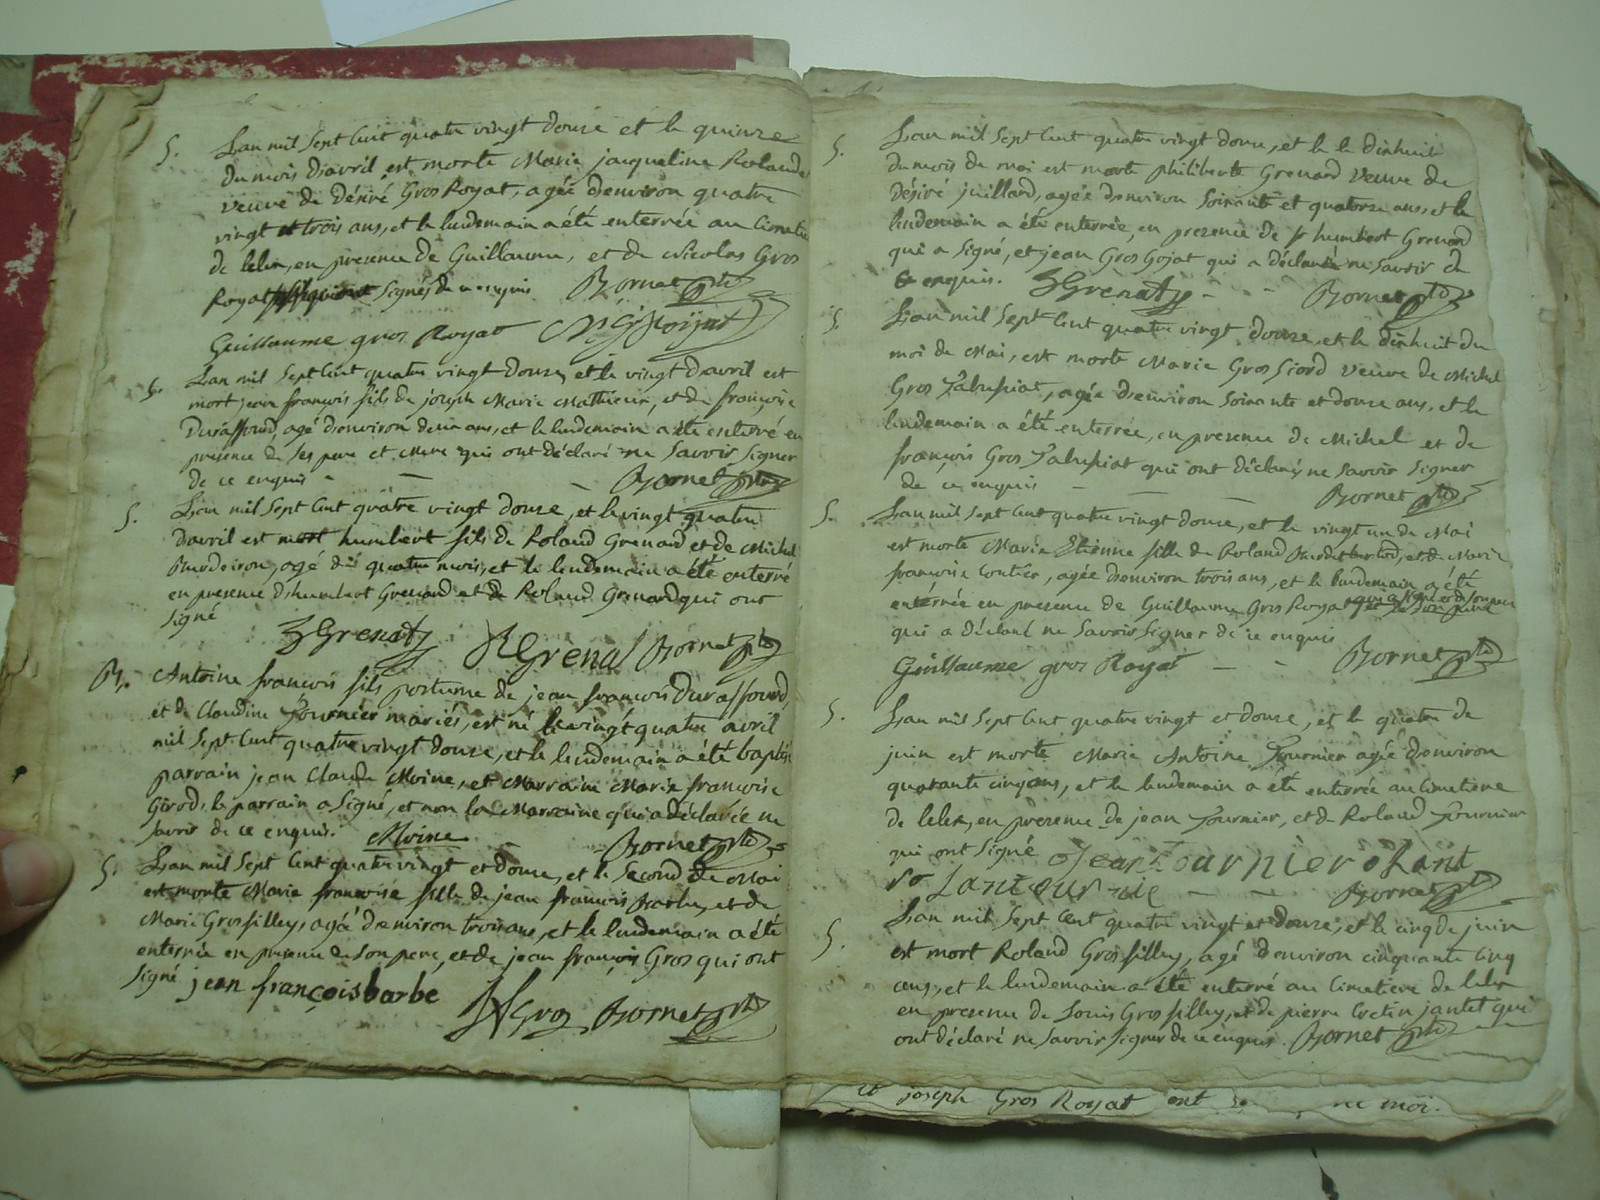 S. L'an mil Sept Cent quatre vingt douze et le quinze
du mois d'avril est morte Marie jacqueline Rolande
veuve de Désiré Gros Royat, agée d'environ quatre
vingt et trois ans, et le lendemain a été enterrée au Cimetie
de lelex, en presence de Guillaume, et de Nicolas Gros
Royat Signés de ce enquis Bornet ptre
Guillaume gros Royat N G Royat
S. L'an mil Sept Cent quatre vingt douze, et le vingt d'avril est
mort jean françois fils de joseph Marie Mathieu, et de françoise
Duraffourd, agé d'environ deux ans, et le lendemain a été enterré en
présence de Ses pere et Mere qui ont déclaré ne Savoir Signer
de ce enquis Bornet ptre
S. L'an mil Sept Cent quatre vingt douze, et le vingt quatre
d'avril est mort humbert fils de Roland Grenard et de Michel
agé de quatre mois, et le lendemain a été enterré
en presence d'humbert Grenard et de Roland Grenard qui ont
Signé
H Grenat R Grena Bornet ptre
B. Antoine françois fils postume de jean françois Duraffourd,
et de Claudine Fournier mariés, est né le vingt quatre avril
mil Sept Cent quatre vingt douze, et le lendemain a été baptisé
parrain jean Claude Moine, et Marraine Marie françoise
Girod, le parrain a Signé, et non la Marraine qui a déclarée ne
Savoir de ce enquis. Moine Bornet ptre
S. L'an mil Sept Cent quatre vingt et douze, et le Second de Mai
est morte Marie françoise fille de jean françois Barbe, et de
Marie Grosfilley, agé d'environ trois ans, et le lendemain a été
enterrée en presence de Son pere, et de jean françois Gros qui ont
Signé jean françois barbe
Gros Bornet ptre
S. L'an mil Sept Cent quatre vingt douze, et le dixhuit
du mois de mai est morte philiberte Grenard veuve de
Désiré juillard, agée d'environ Soixante et quatorze ans, et le
lendemain a été enterrée, en presence de Sr humbert Grenard
qui a Signé, et jean Gros Gojat qui a déclaré ne Savoir de
ce enquis. H Grenat Bornet ptre
S. L'an mil Sept Cent quatre vingt douze, et le dixhuit du
moi de Mai, est morte Marie Gros Giord veuve de Michel
Gros agée d'environ Soixante et douze ans, et le
lendemain a été enterrée, en presence de Michel et de
françois Gros qui ont déclarés ne Savoir Signer
de ce enquis Bornet ptre
S. L'an mil Sept Cent quatre vingt douze, et le vingt un de Mai
est morte Marie Etienne fille de Roland et de Marie
françoise Coutier, agée d'environ trois ans, et le lendemain a été
enterrée en presence de Guillaume Gros Royat qui a Signé et de Son pere
qui a déclaré ne Savoir Signer de ce enquis
Guillaume gros Royat Bornet ptre
S. L'an mil Sept Cent quatre vingt et douze, et le quatre de
juin est morte Marie Antoine Fournier agée d'environ
quarante cinq ans, et le lendemain a été enterrée au Cimetiere
de lelex, en presence de jean Fournier, et de Roland Fournier
qui ont Signé Jean Fournier
Bornet ptre
S. L'an mil Sept Cent quatre vingt et douze, et le cinq de juin
est mort Roland Grosfilley, agé d'environ cinquante Cinq
ans, et le lendemain a été enterré au Cimetiere de lelex
en presence de Louis Grosfilley, et de pierre Cretin jantet qui
ont déclaré ne Savoir Signer de ce enquis. Bornet ptre
et joseph Gros Royat ont ne moi.